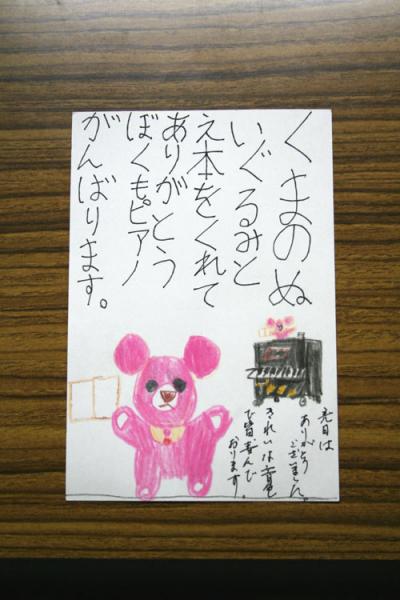 くまのぬ
いぐるみと
え本をくれて
ありがとう
ぼくもピアノ
がんばります。
先日は
ありがとう
ございました。
きれいな音色
で皆喜んで
おります。